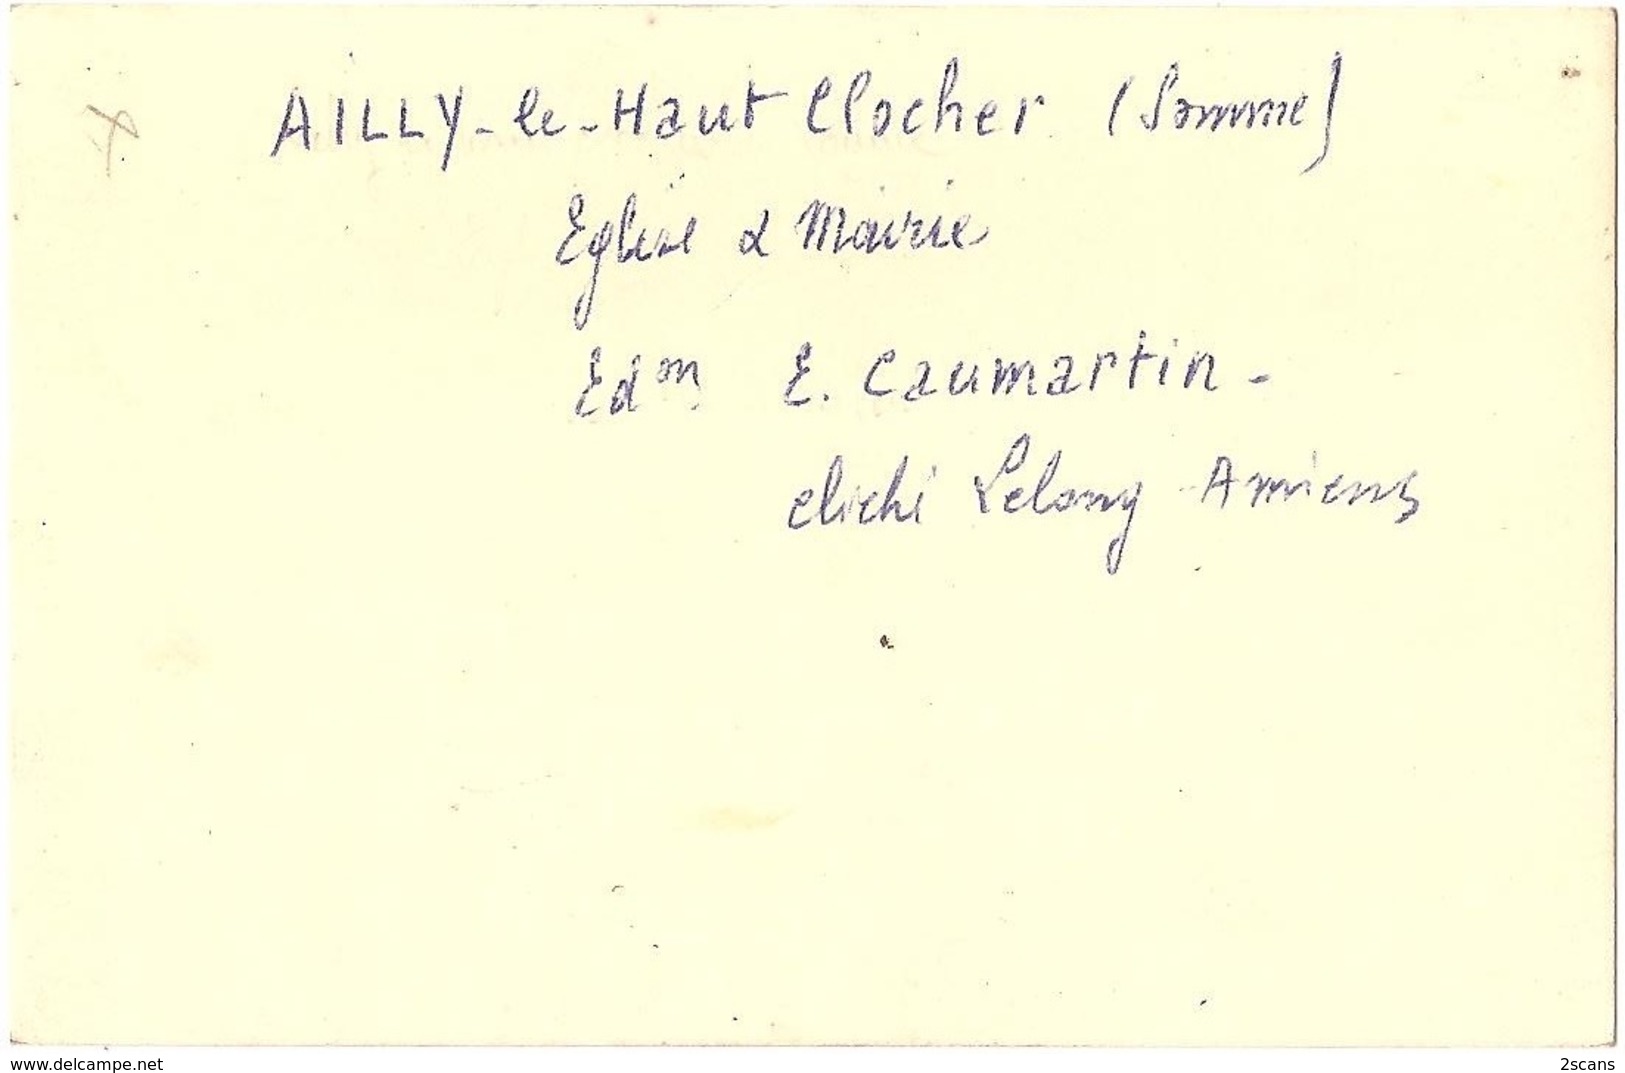 AILLY-le-Haut Clocher (Somme)
Eglise & Mairie
Edon E. Caumartin -
cliché Lelong Amiens
www.delcampe.net
2scans